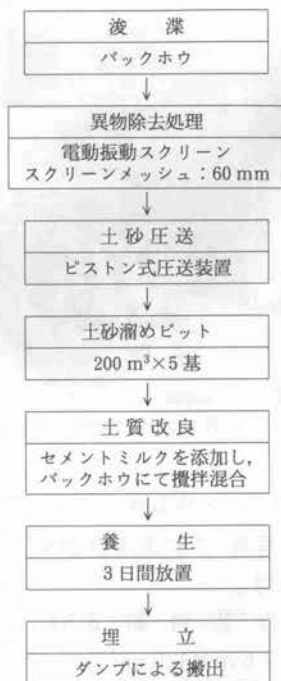 浚　渫
バックホウ
↓
異物除去処理
電動振動スクリーン
スクリーンメッシュ：60 mm
↓
土砂圧送
ピストン式圧送装置
↓
土砂溜めピット
200 m³×5 基
↓
土質改良
セメントミルクを添加し，
バックホウにて攪拌混合
↓
養　生
3 日間放置
↓
埋　立
ダンプによる搬出